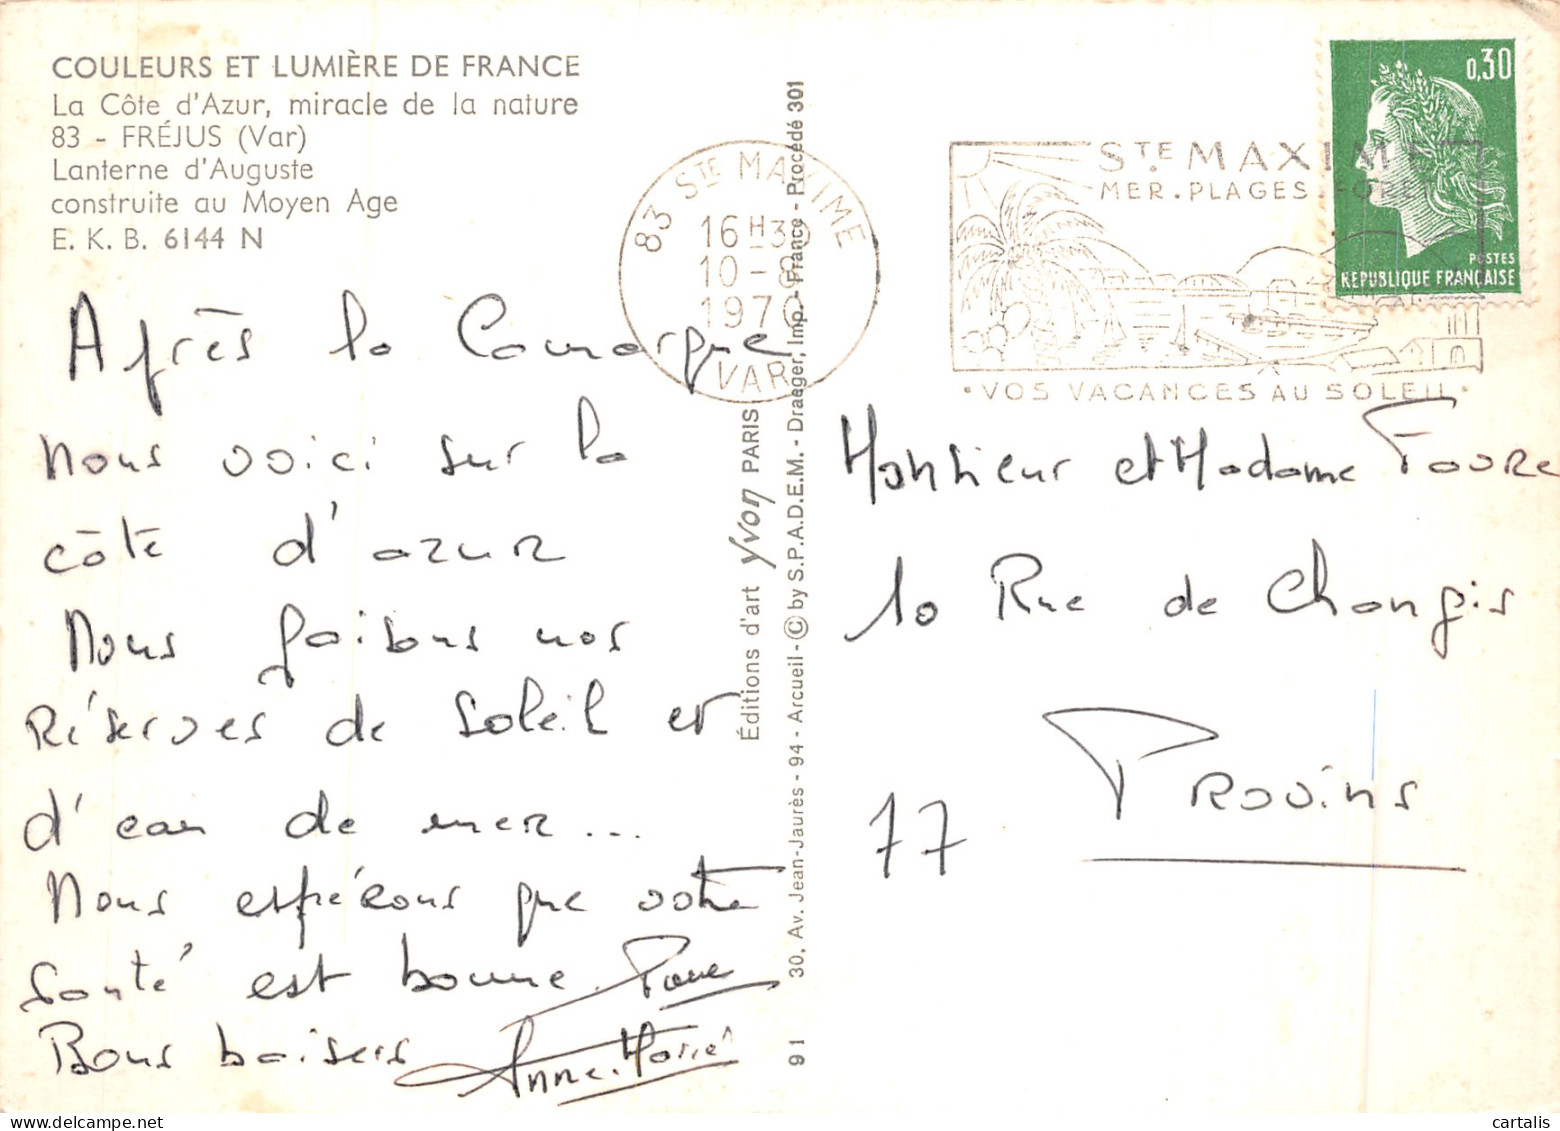 COULEURS ET LUMIÈRE DE FRANCE
La Côte d'Azur, miracle de la nature
83 - FRÉJUS (Var)
Lanterne d'Auguste
construite au Moyen Age
E. K. B. 6144 N
Après la Camargue
nous voici sur la
côte d'azur
Nous faisons nos
Réserves de soleil et
d'eau de mer...
Nous espérons que votre
santé est bonne
Bons baisers Anne-Marie
Éditions d'art Yvon PARIS
30, Av. Jean-Jaurès - 94 - Arcueil - © by S.P.A.D.E.M. - Draeger, Imp. - France - Procédé 301
91
83 STE MAXIME
16 H 30
10 - 8
1970
VAR
STE MAXIME
MER. PLAGES. FORET
• VOS VACANCES AU SOLEIL •
0,30
POSTES
REPUBLIQUE FRANÇAISE
Monsieur et Madame Favre
10 Rue de Changis
77 Provins
cartalis